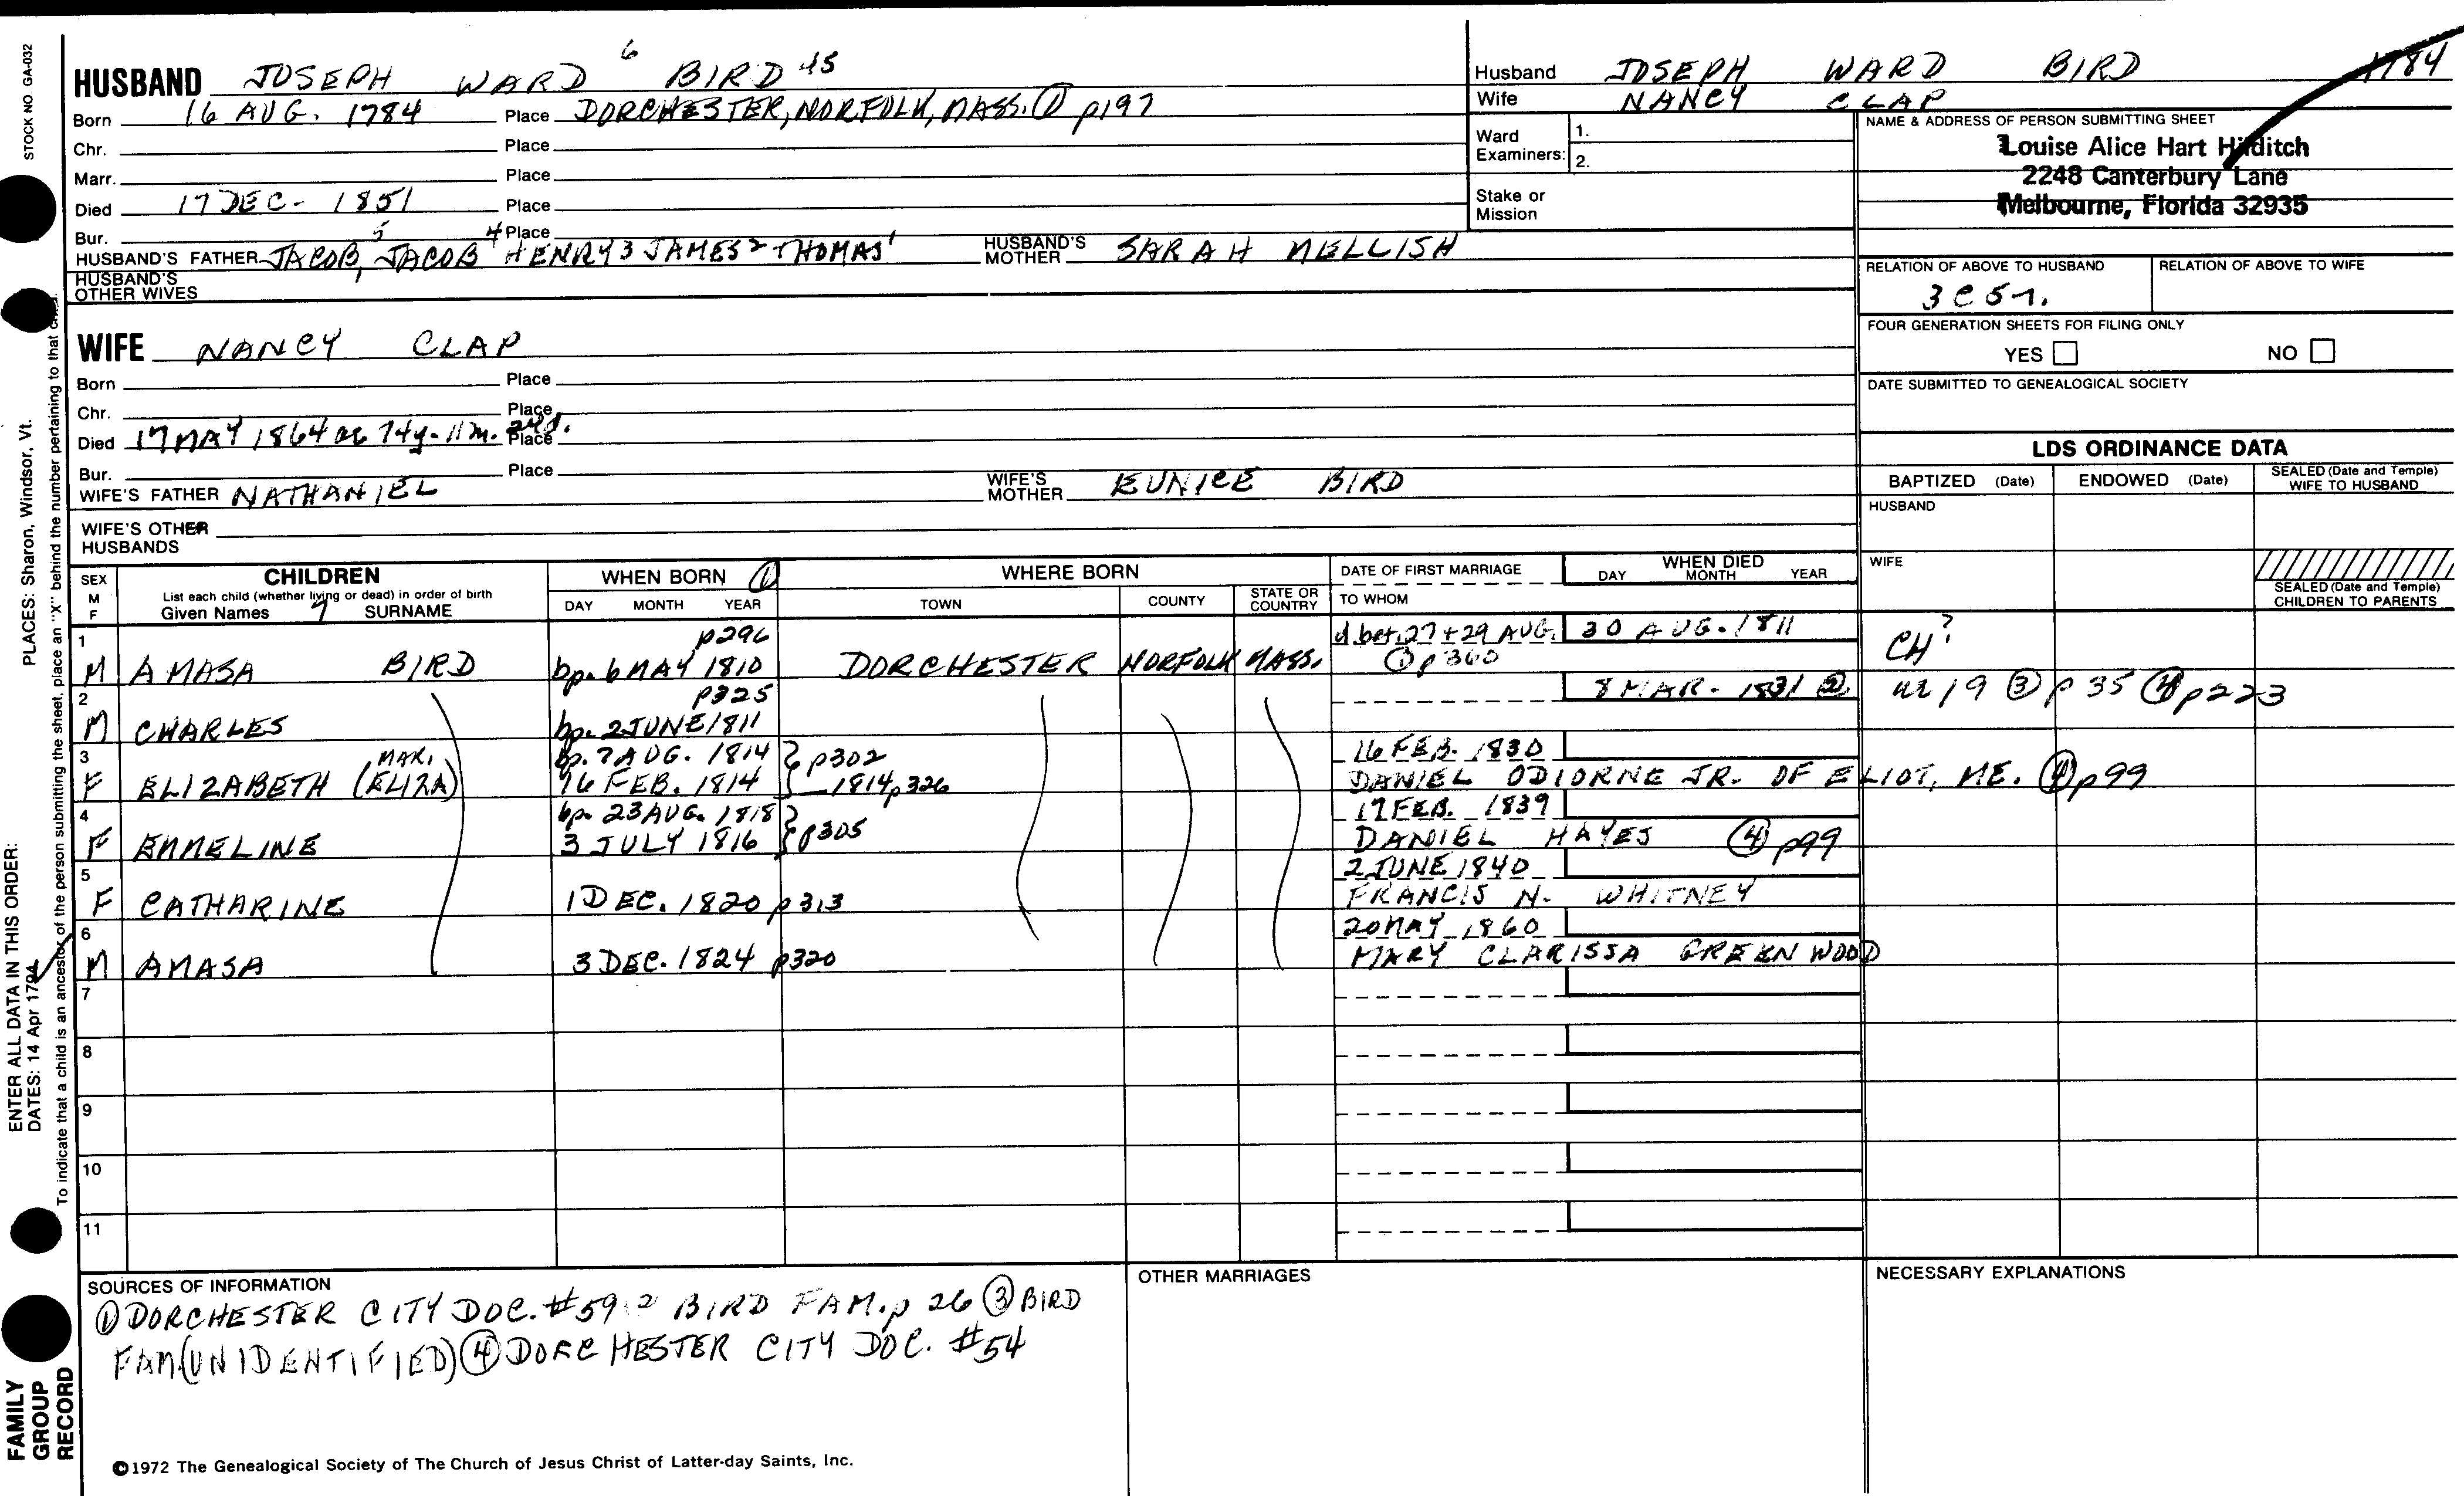 STOCK NO GA-032
PLACES: Sharon, Windsor, Vt.
ENTER ALL DATA IN THIS ORDER:
DATES: 14 Apr 1794
To indicate that a child is an ancestor of the person submitting the sheet, place an "X" behind the number pertaining to that child.
FAMILY GROUP RECORD
HUSBAND JOSEPH WARD 6 BIRD 45
Born 16 AUG. 1784 Place DORCHESTER, NORFOLK, MASS. ① p197
Chr. Place
Marr. Place
Died 17 DEC- 1851 Place
Bur. Place
HUSBAND'S FATHER JACOB, 5 JACOB 4 HENRY 3 JAMES 2 THOMAS 1 HUSBAND'S MOTHER SARAH MELLISH
HUSBAND'S OTHER WIVES
WIFE NANCY CLAP
Born Place
Chr. Place
Died 17 MAY 1864 ae 74y. 11m. 24d. Place
Bur. Place
WIFE'S FATHER NATHANIEL WIFE'S MOTHER EUNICE BIRD
WIFE'S OTHER HUSBANDS
Husband JOSEPH WARD BIRD 1784
Wife NANCY CLAP
Ward Examiners: 1.
2.
Stake or Mission
NAME & ADDRESS OF PERSON SUBMITTING SHEET
Louise Alice Hart Hilditch
2248 Canterbury Lane
Melbourne, Florida 32935
RELATION OF ABOVE TO HUSBAND RELATION OF ABOVE TO WIFE
3C5r.
FOUR GENERATION SHEETS FOR FILING ONLY
YES NO
DATE SUBMITTED TO GENEALOGICAL SOCIETY
LDS ORDINANCE DATA
BAPTIZED (Date) ENDOWED (Date) SEALED (Date and Temple) WIFE TO HUSBAND
HUSBAND
WIFE
SEALED (Date and Temple) CHILDREN TO PARENTS
SEX M F CHILDREN WHEN BORN ① WHERE BORN DATE OF FIRST MARRIAGE WHEN DIED
List each child (whether living or dead) in order of birth
Given Names SURNAME DAY MONTH YEAR TOWN COUNTY STATE OR COUNTRY TO WHOM DAY MONTH YEAR
1 p296 d. bet. 27 + 29 AUG. 30 AUG. 1811
M AMASA BIRD bp. 6 MAY 1810 DORCHESTER NORFOLK MASS. ① p360 CH?
2 p325 8 MAR- 1831 ② ae 19 ③ p 35 ④ p223
M CHARLES bp. 2 JUNE 1811
3 MARI bp. 7 AUG. 1814 p302 16 FEB. 1830
F ELIZABETH (ELIZA) 16 FEB. 1814 1814 p326 DANIEL ODIORNE JR. OF ELIOT, ME. ④ p99
4 bp. 23 AUG. 1818 p305 17 FEB. 1839
F EMMELINE 3 JULY 1816 DANIEL HAYES ④ p99
5 2 JUNE 1840
F CATHARINE 1 DEC. 1820 p313 FRANCIS N. WHITNEY
6 20 MAY 1860
M AMASA 3 DEC. 1824 p320 MARY CLARISSA GREENWOOD
7
8
9
10
11
SOURCES OF INFORMATION
① DORCHESTER CITY DOC. #59 2 BIRD FAM. p 26 ③ BIRD
FAM (UNIDENTIFIED) ④ DORCHESTER CITY DOC. #54
OTHER MARRIAGES
NECESSARY EXPLANATIONS
©1972 The Genealogical Society of The Church of Jesus Christ of Latter-day Saints, Inc.